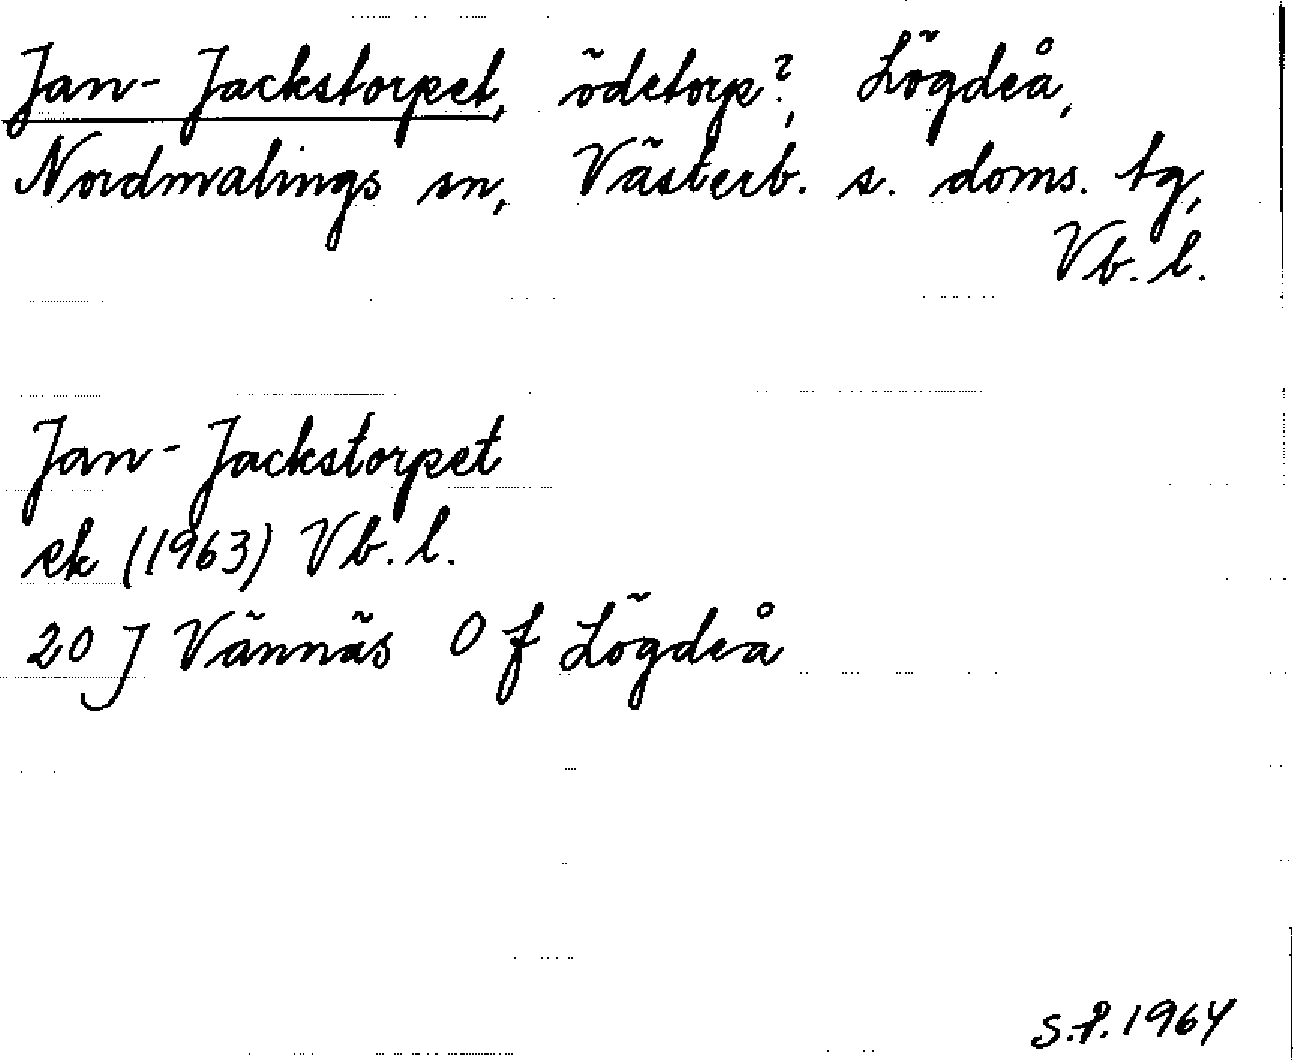 Jan-Jackstorpet, ödetorp?, Lögdeå,
Nordmalings sn, Västerb. s. doms. tg,
Vb. l.
Jan-Jackstorpet
ek (1963) Vb. l.
20 J Vännäs 0 f Lögdeå
S.P. 1964